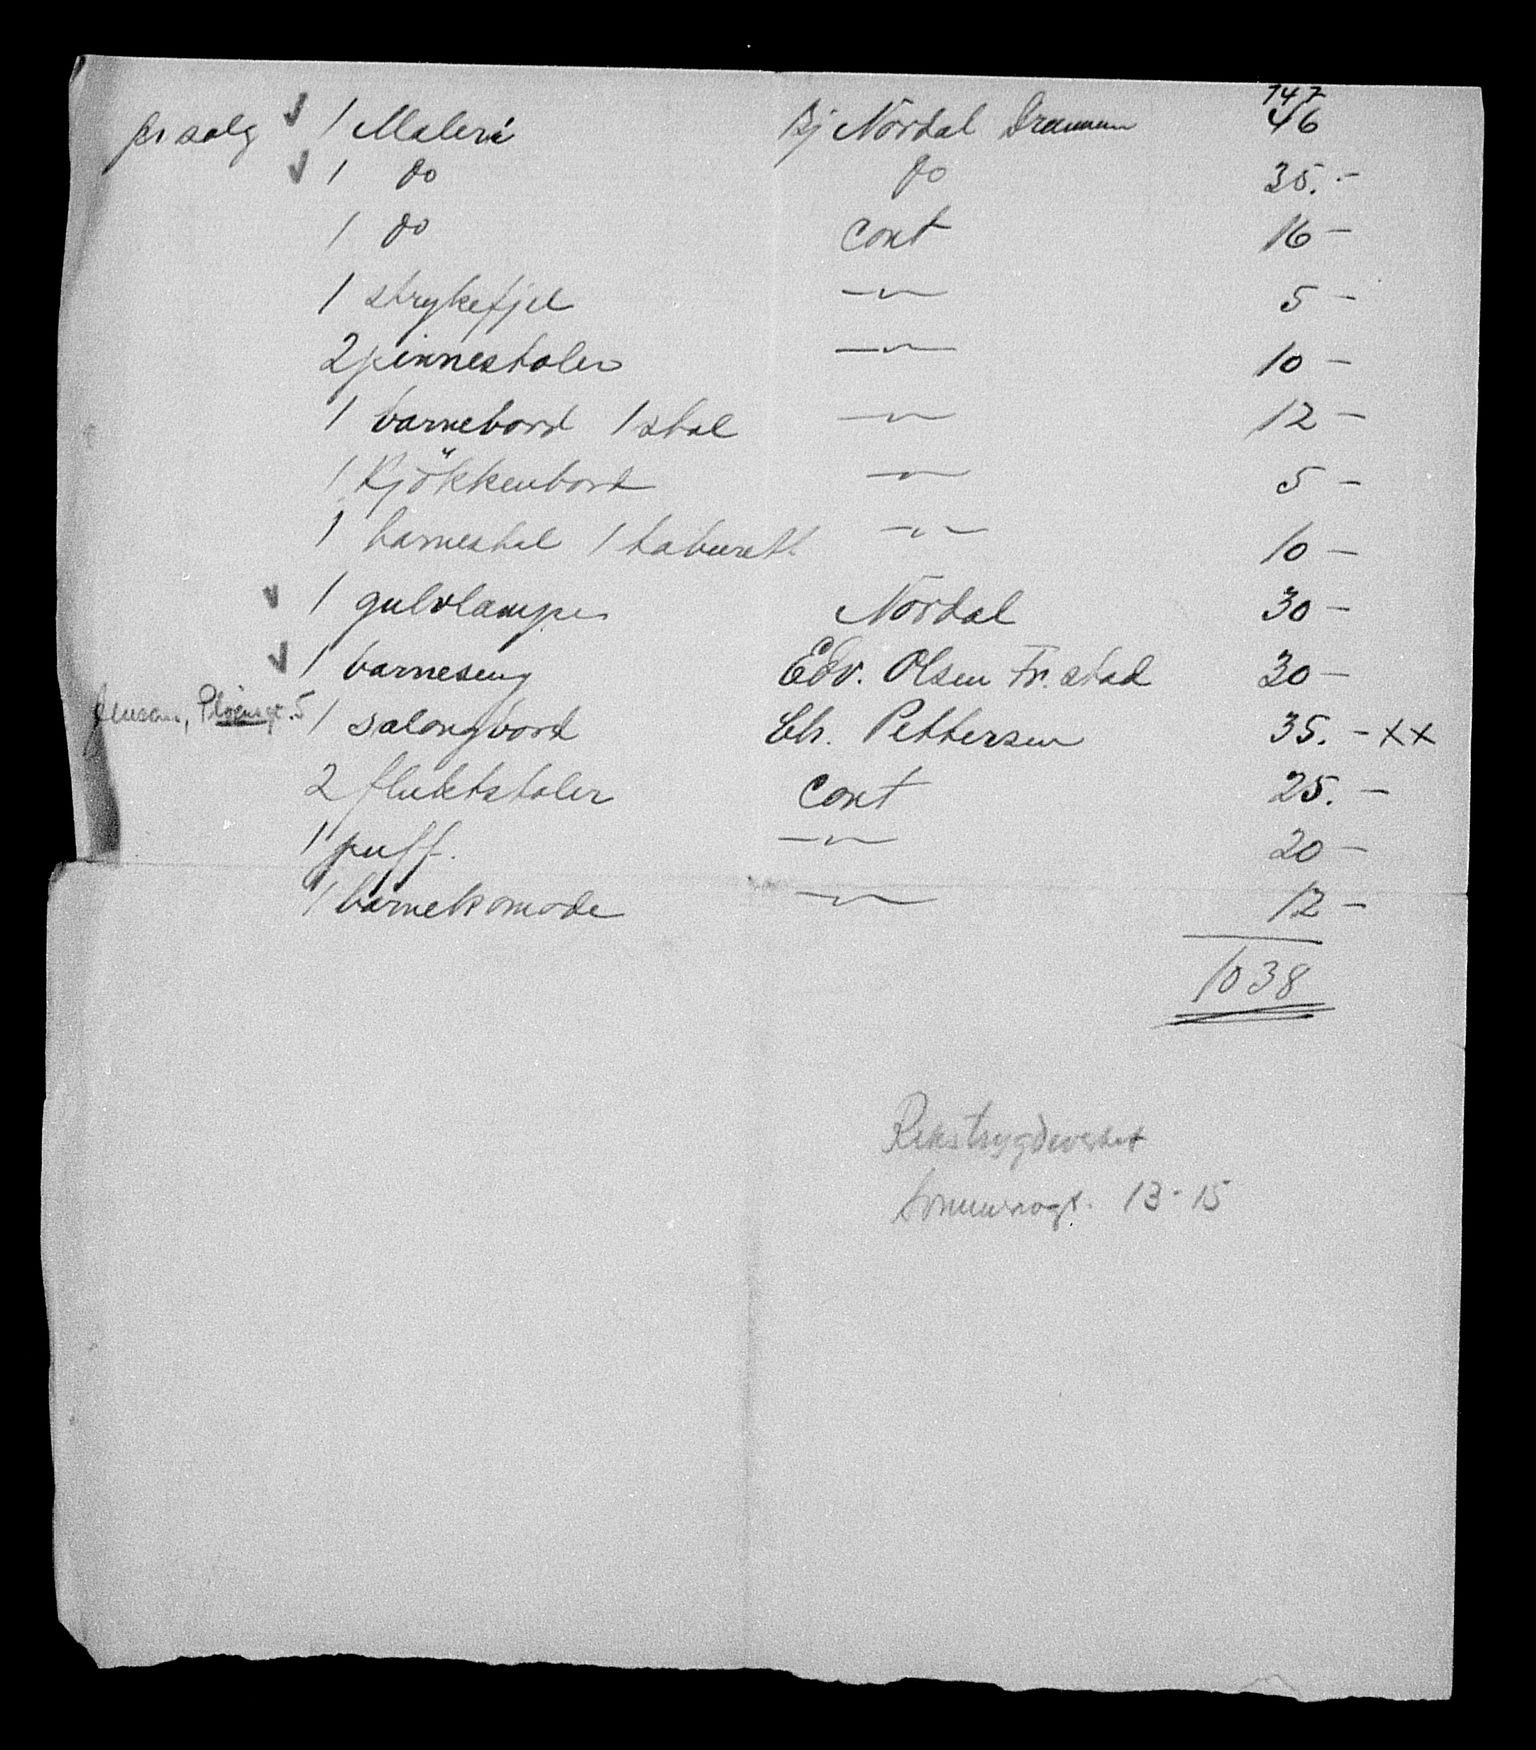 747
pr salg ✓ 1 Maleri Bj Nordal Drammen 46
✓ 1 do do 35.-
1 do cont 16 -
1 strykefjel -"- 5 -
2 pinnestoler -"- 10 -
1 barnebord 1 stol -"- 12 -
1 Kjökkenbord -"- 5 -
1 barnestol 1 taburett -"- 10 -
✓ 1 gulvlampe Nordal 30 -
✓ 1 barneseng Edv. Olsen Fr.stad 30 -
Jensen, Pløensgt. 5 1 salongbord Chr. Pettersen 35. - xx
2 fluktstoler cont 25. -
1 puff. -"- 20 -
1 barnekomode -"- 12 -
1038
Rikstrygdeverket
Sommerrogt. 13-15